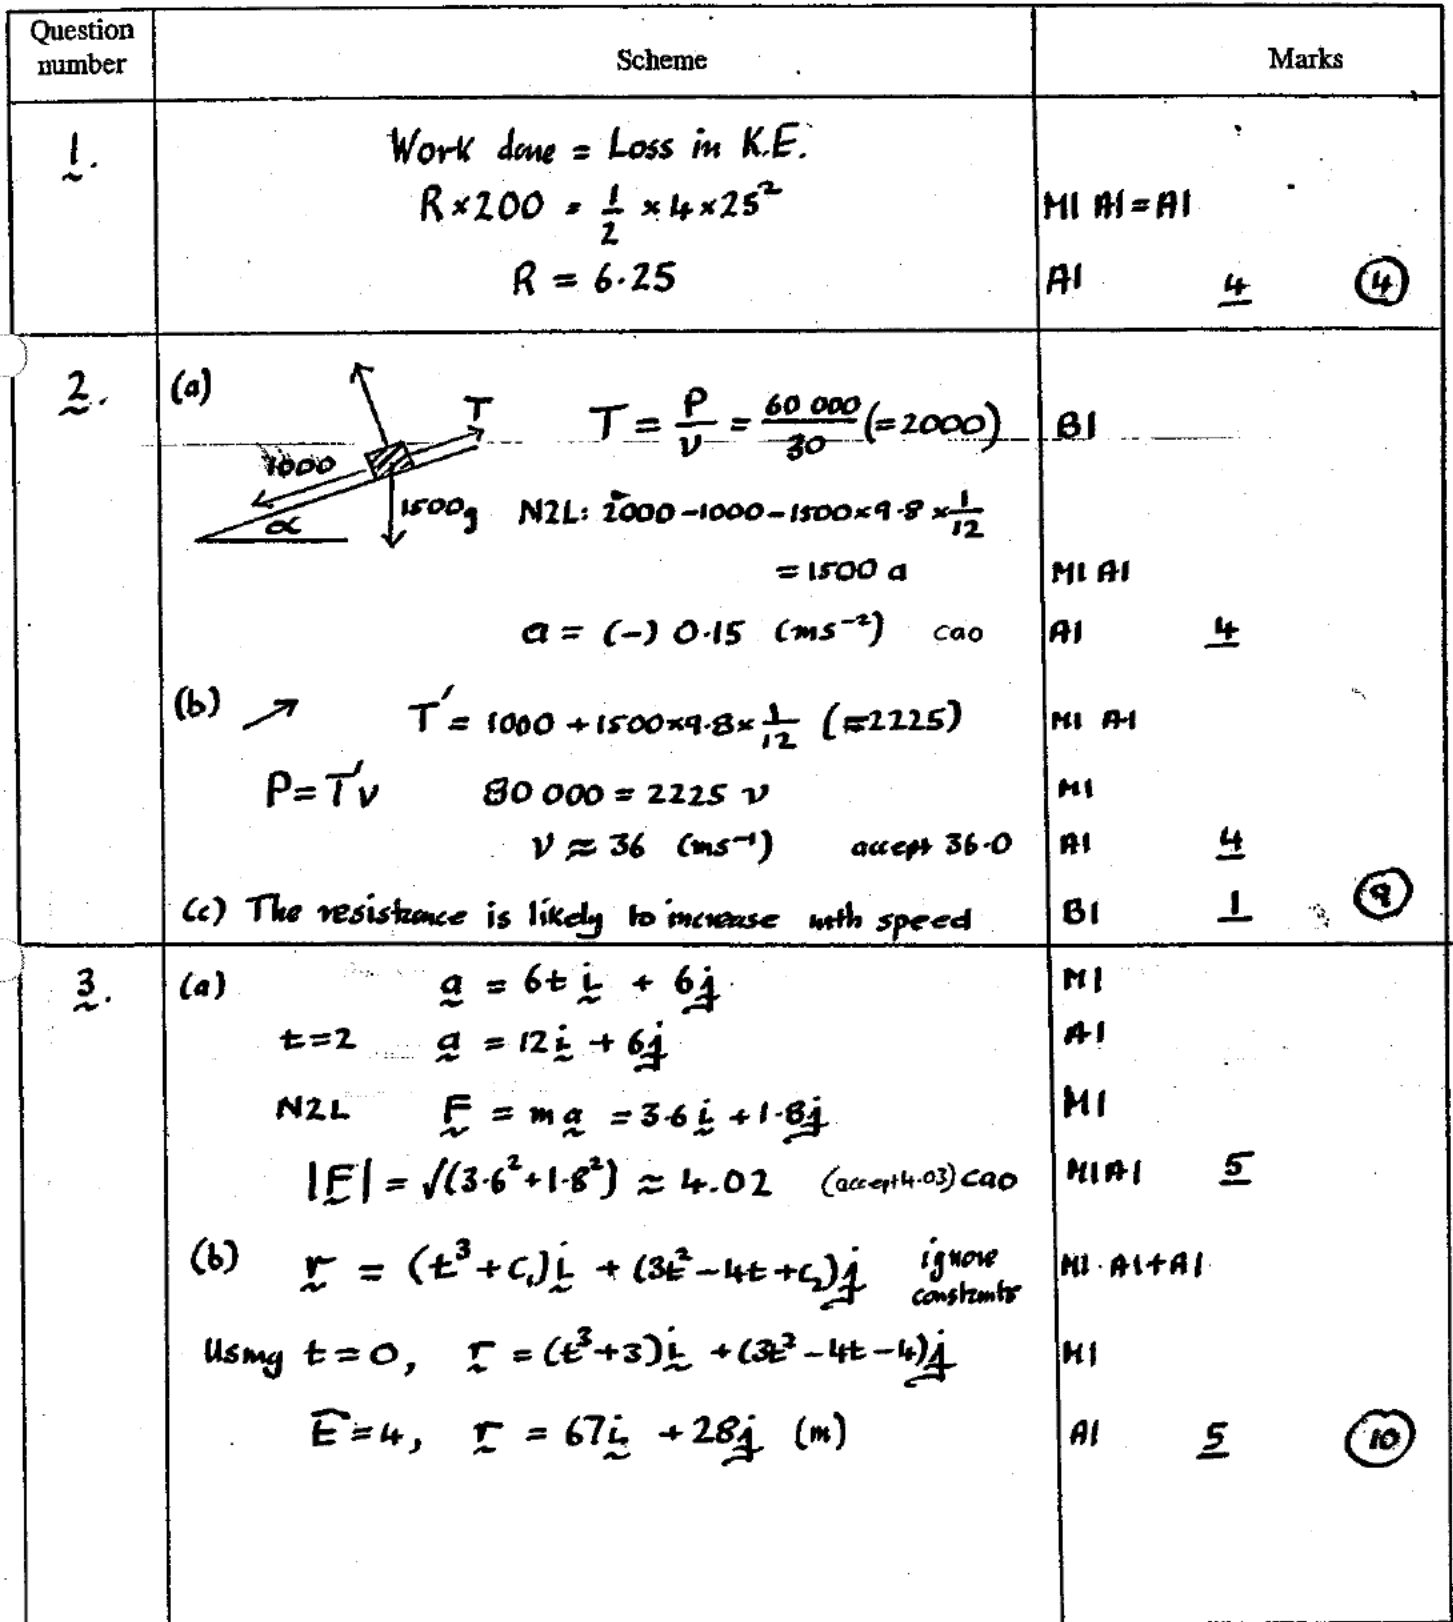 Question number
Scheme
Marks
1.
Work done = Loss in K.E.
R×200 = 1/2 ×4×25²
M1 A1=A1
R = 6.25
A1 4 (4)
2. (a)
T
1000
1500g
α
T = P/v = 60 000/30 (=2000)
B1
N2L: 2000-1000-1500×9.8×1/12
= 1500 a
M1 A1
a = (-) 0.15 (ms⁻²) cao
A1 4
(b) ↗ T′ = 1000 + 1500×9.8×1/12 (=2225)
M1 A1
P=T′v 80 000 = 2225 v
M1
v ≈ 36 (ms⁻¹) accept 36.0
A1 4
(c) The resistance is likely to increase with speed
B1 1 (9)
3. (a) a = 6t i + 6j
M1
t=2 a = 12i + 6j
A1
N2L F = ma = 3.6i + 1.8j
M1
|F| = √(3.6²+1.8²) ≈ 4.02 (accept 4.03) cao
M1A1 5
(b) r = (t³+C₁)i + (3t²-4t+C₂)j ignore constants
M1.A1+A1
Using t=0, r = (t³+3)i + (3t²-4t-4)j
M1
t=4, r = 67i + 28j (m)
A1 5 (10)